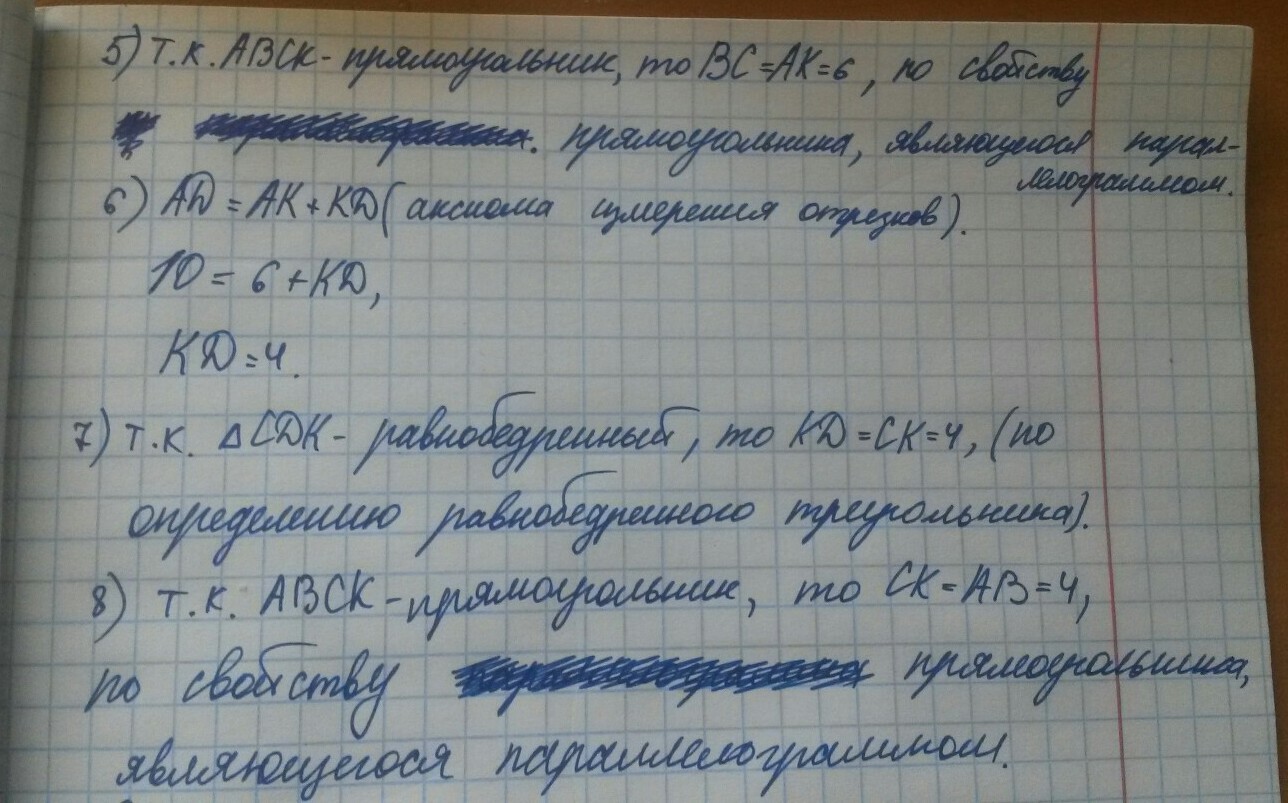 5) т.к. ABCK - прямоугольник, то BC=AK=6, по свойству
прямоугольника, являющегося парал-
лелограммом.
6) AD = AK + KD (аксиома измерения отрезков).
10 = 6 + KD,
KD = 4.
7) т.к. △CDK - равнобедренный, то KD = CK = 4, (по
определению равнобедренного треугольника).
8) т.к. ABCK - прямоугольник, то CK = AB = 4,
по свойству прямоугольника,
являющегося параллелограммом.